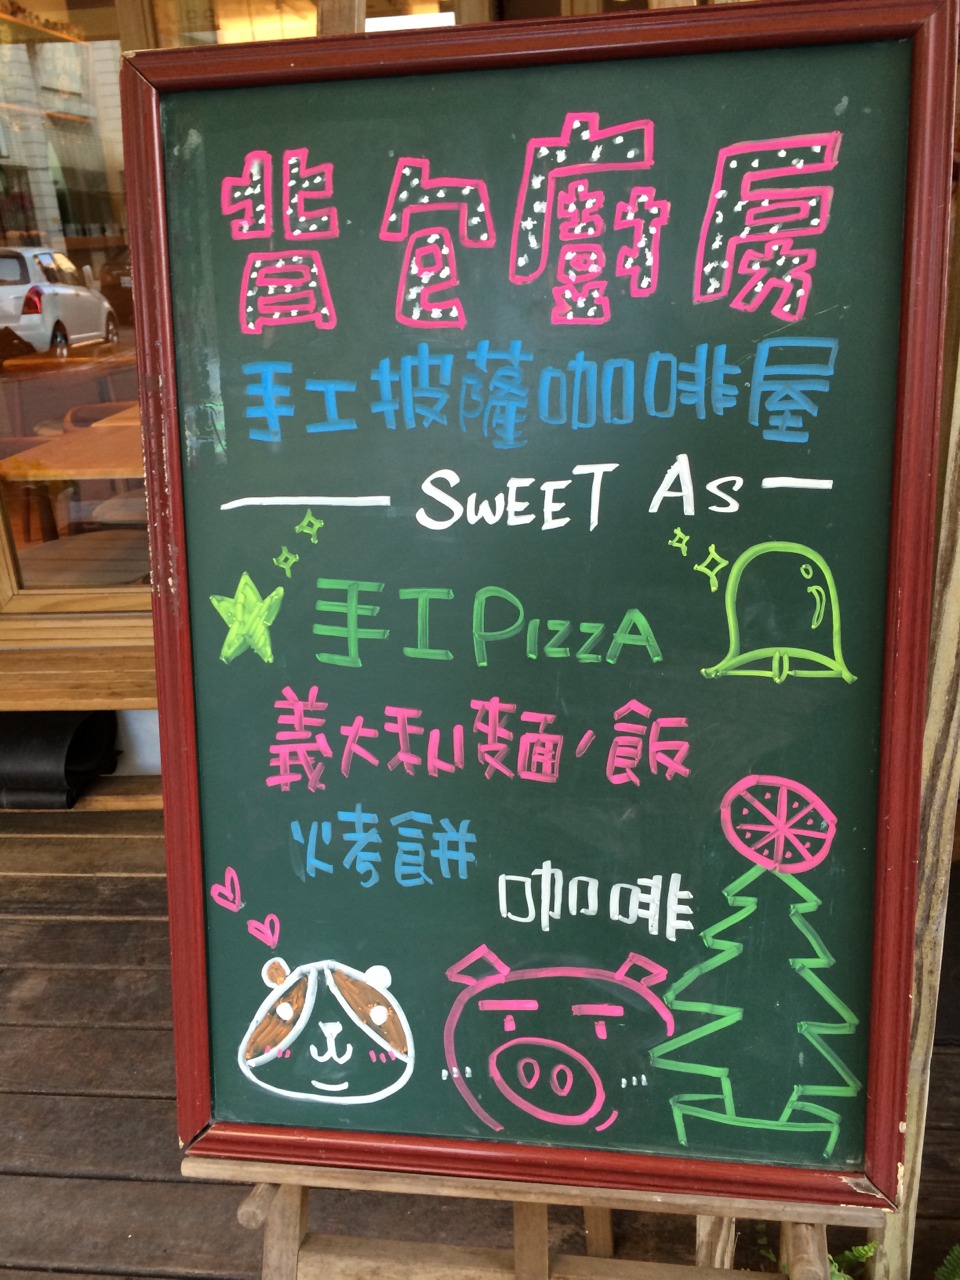 背包廚房
手工披薩咖啡屋
SWEET AS
手工PIZZA
義大利麵、飯
烤餅
咖啡